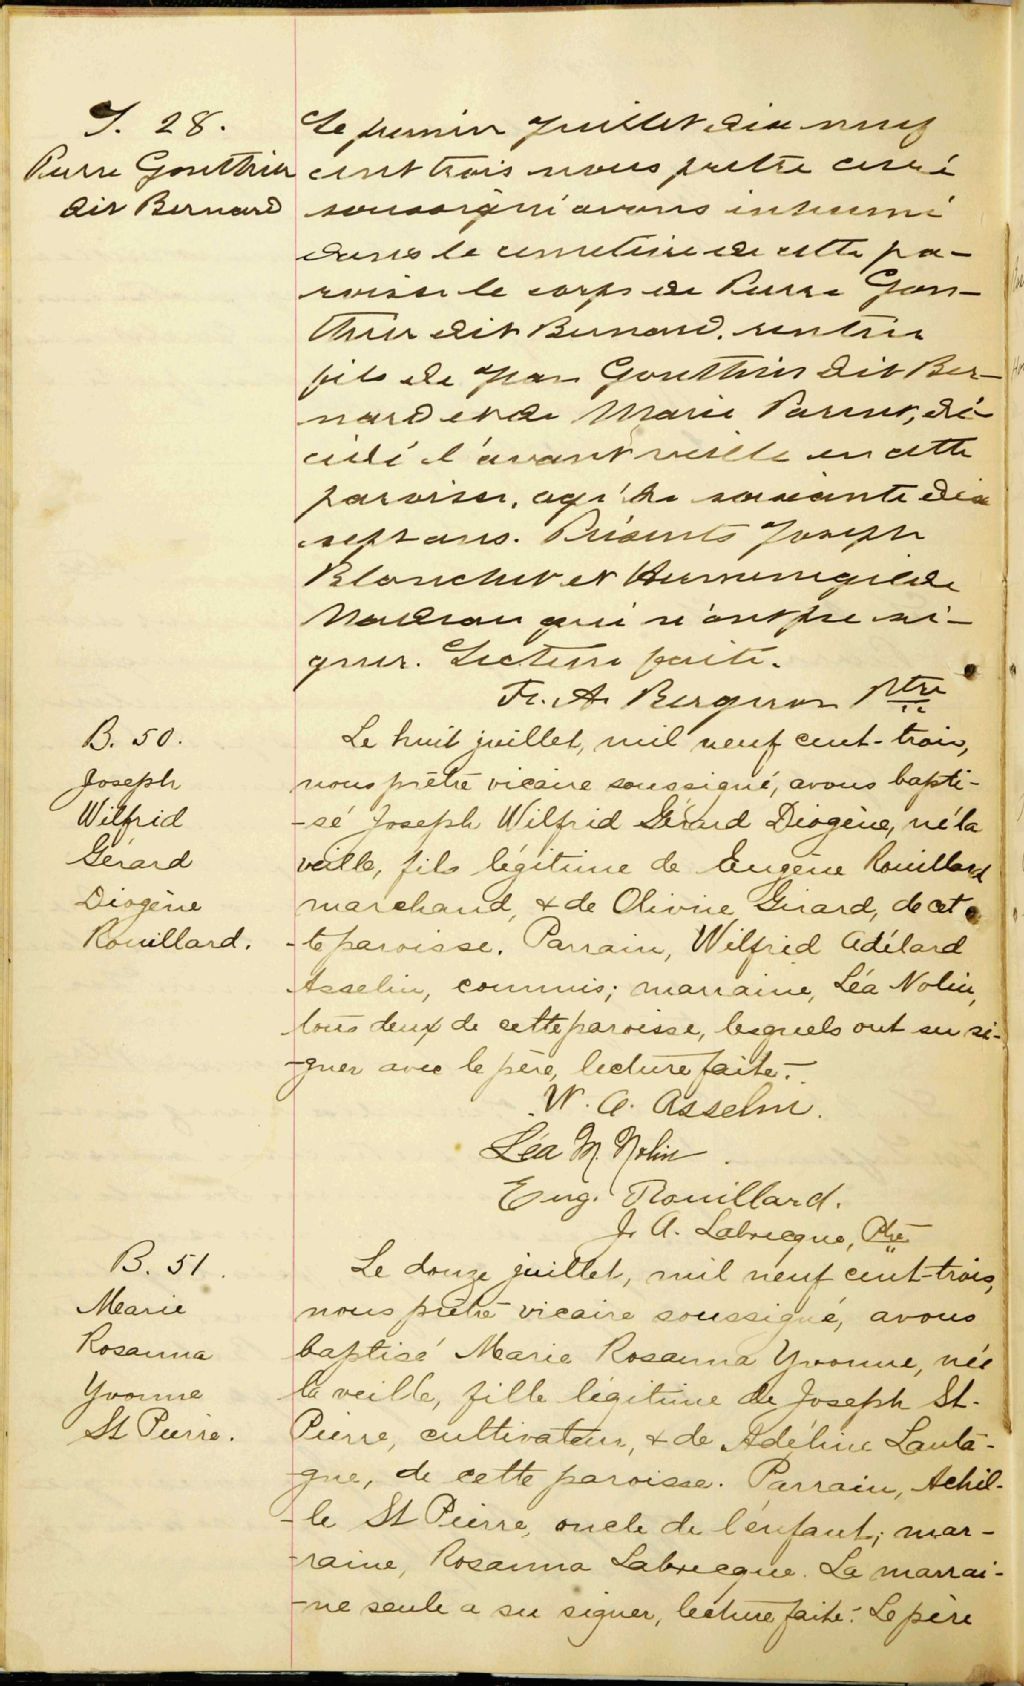 S. 28.
Pierre Gonthier
dit Bernard
Le premier Juillet dix neuf
cent trois nous pretre curé
soussigné avons inhumé
dans le cimetiere de cette pa-
roisse le corps de Pierre Gon-
thier dit Bernard, rentier
fils de Jean Gonthier dit Ber-
nard et de Marie Parent, dé-
cédé l'avant veille en cette
paroisse, agé de soixante dix
sept ans. Présents Joseph
Blanchet et Hermenegilde
Nadeau qui n'ont pu si-
gner. Lecture faite.
Fr. A. Bergeron Ptre
B. 50.
Joseph
Wilfrid
Gérard
Diogène
Rouillard.
Le huit juillet, mil neuf cent-trois,
nous prêtre vicaire soussigné, avons bapti-
-sé Joseph Wilfrid Gérard Diogène, né la
veille, fils légitime de Eugène Rouillard
marchand, & de Olivine Girard, de cet
-te paroisse. Parrain, Wilfrid Adélard
Asselin, commis; marraine, Léa Nolin,
tous deux de cette paroisse, lesquels ont su si-
-gner avec le père, lecture faite.
W. A. Asselin.
Léa M. Nolin
Eug. Rouillard.
J. A. Labrecque, Ptre
B. 51.
Marie
Rosanna
Yvonne
St Pierre.
Le douze juillet, mil neuf cent-trois,
nous prêtre vicaire soussigné, avons
baptisé Marie Rosanna Yvonne, née
la veille, fille légitime de Joseph St-
Pierre, cultivateur, & de Adéline Lanta-
-gne, de cette paroisse. Parrain, Achil-
-le St Pierre, oncle de l'enfant; mar-
-raine, Rosanna Labrecque. La marrai-
-ne seule a su signer, lecture faite. Le père